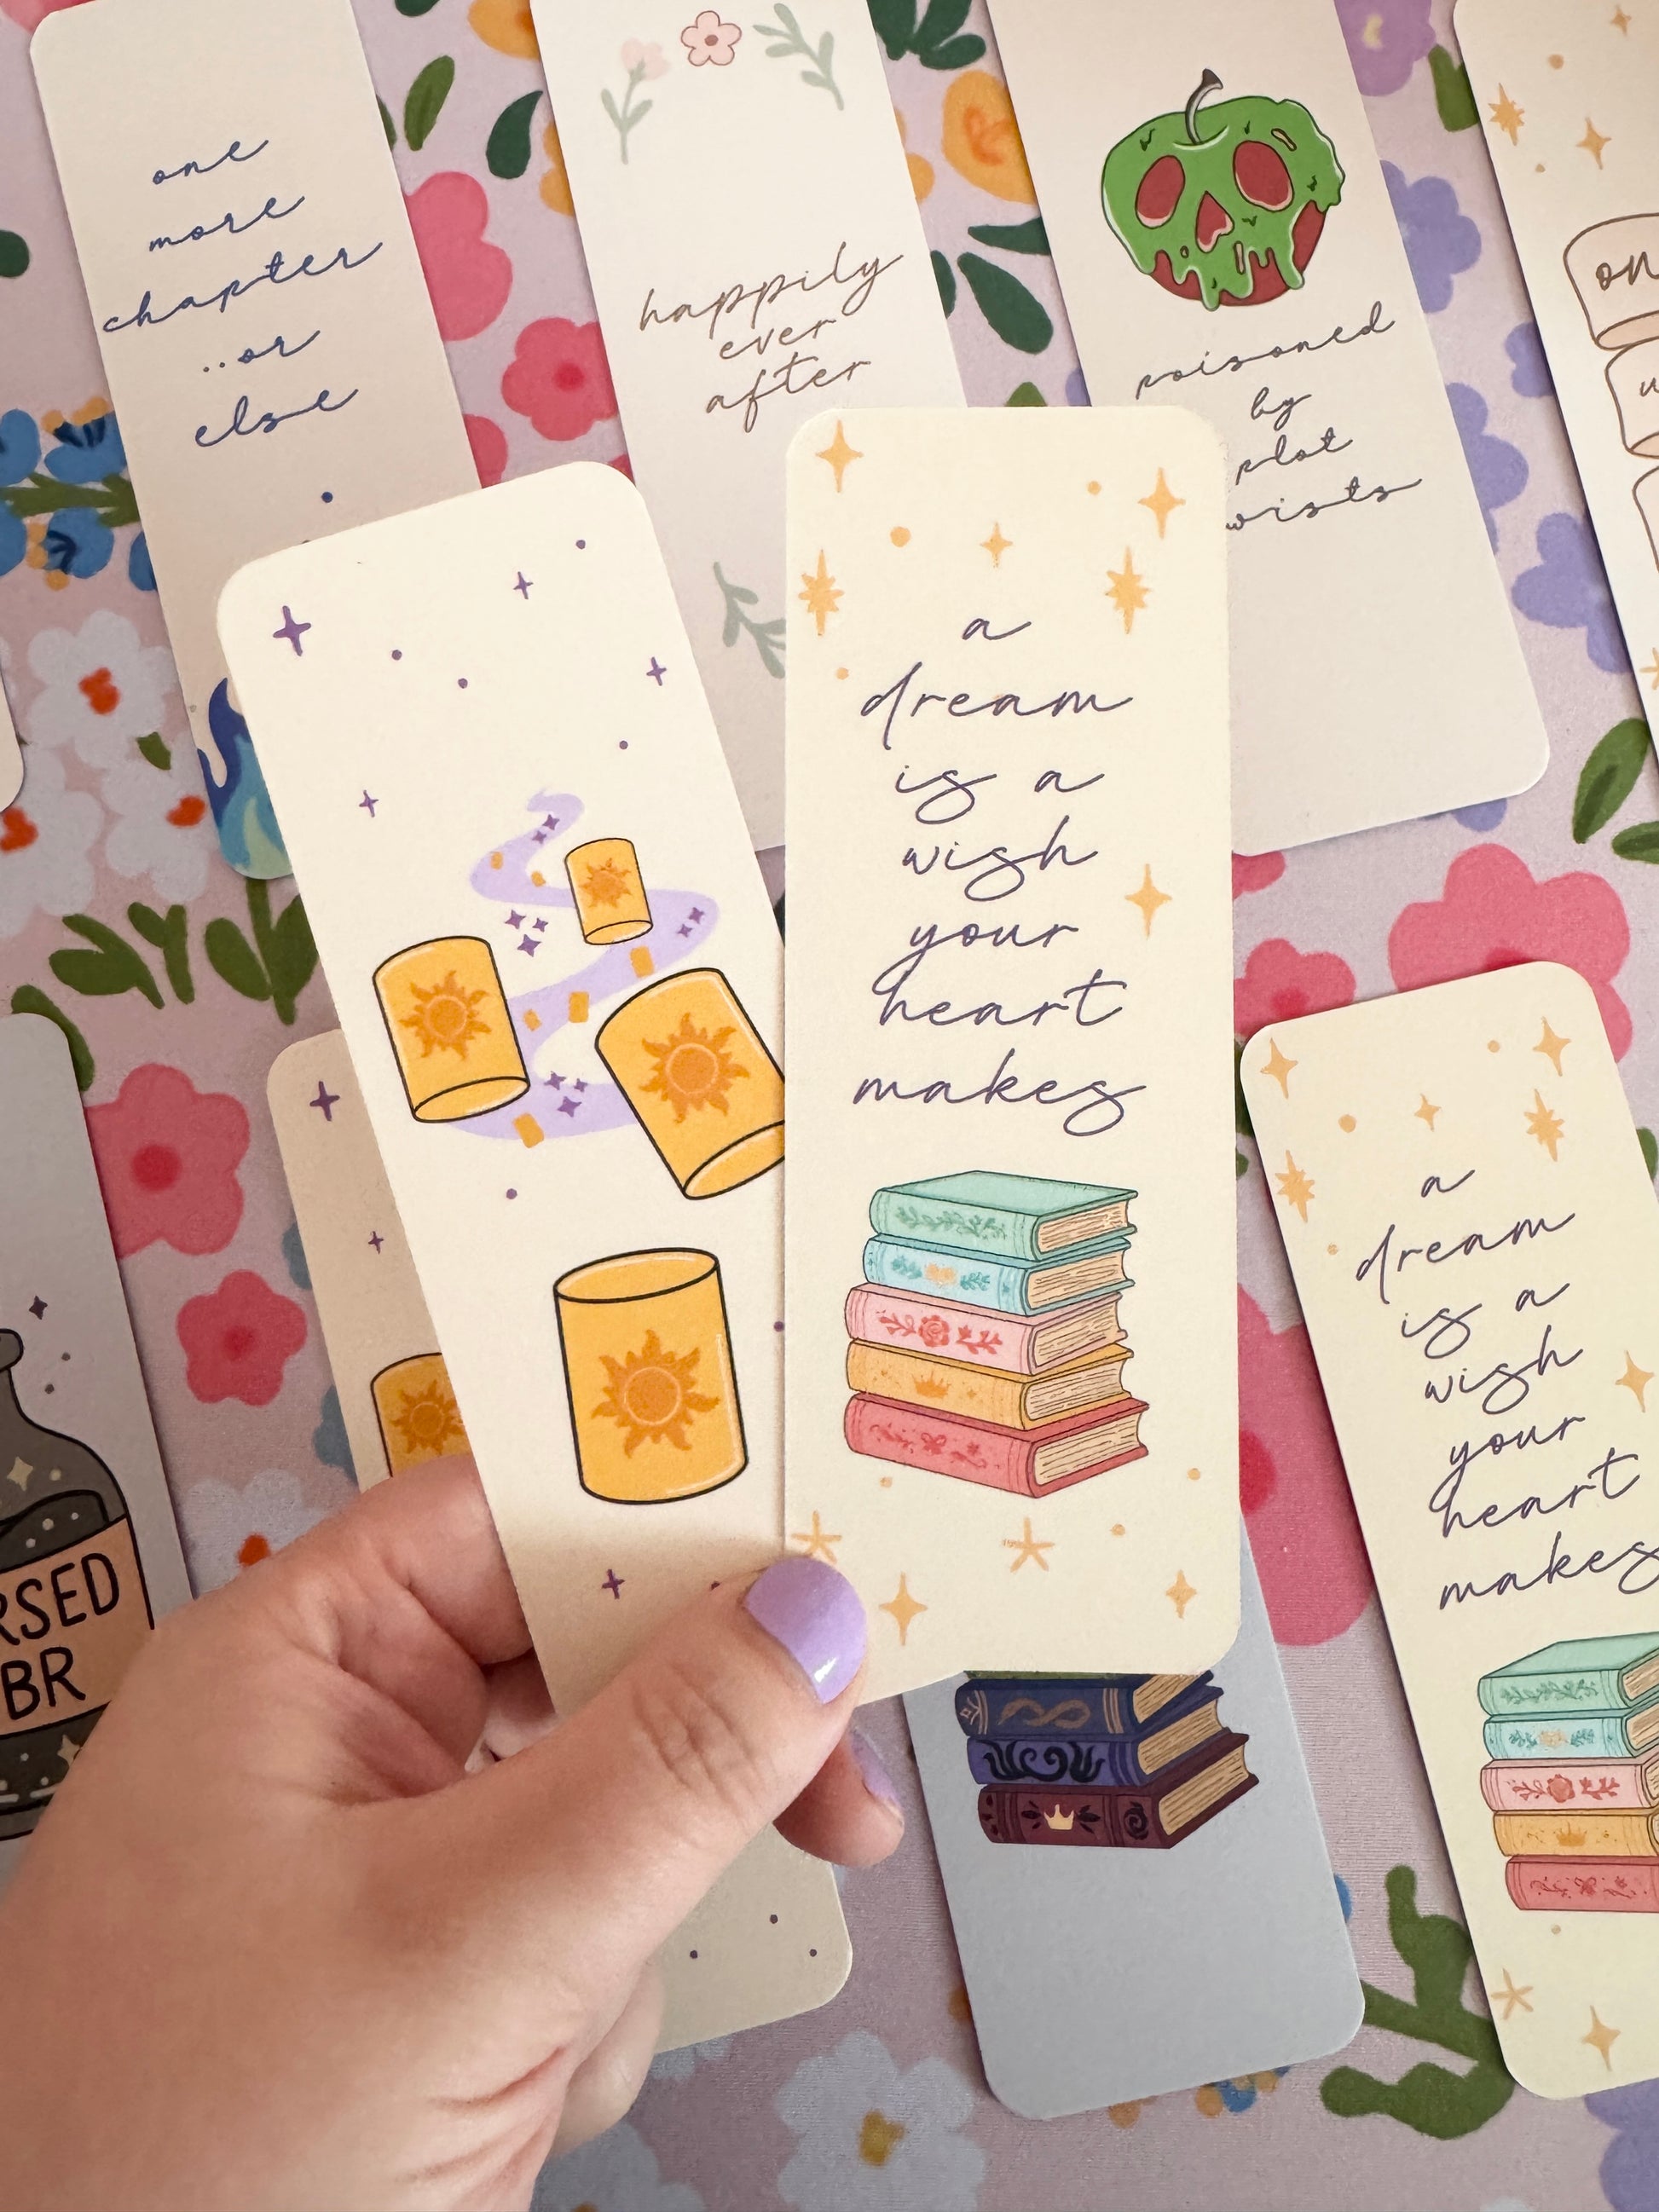 one
more
chapter
..or
else
happily
ever
after
poisoned
by
plot
a
dream
is a
wish
your
heart
makes
a
dream
is a
wish
your
heart
makes